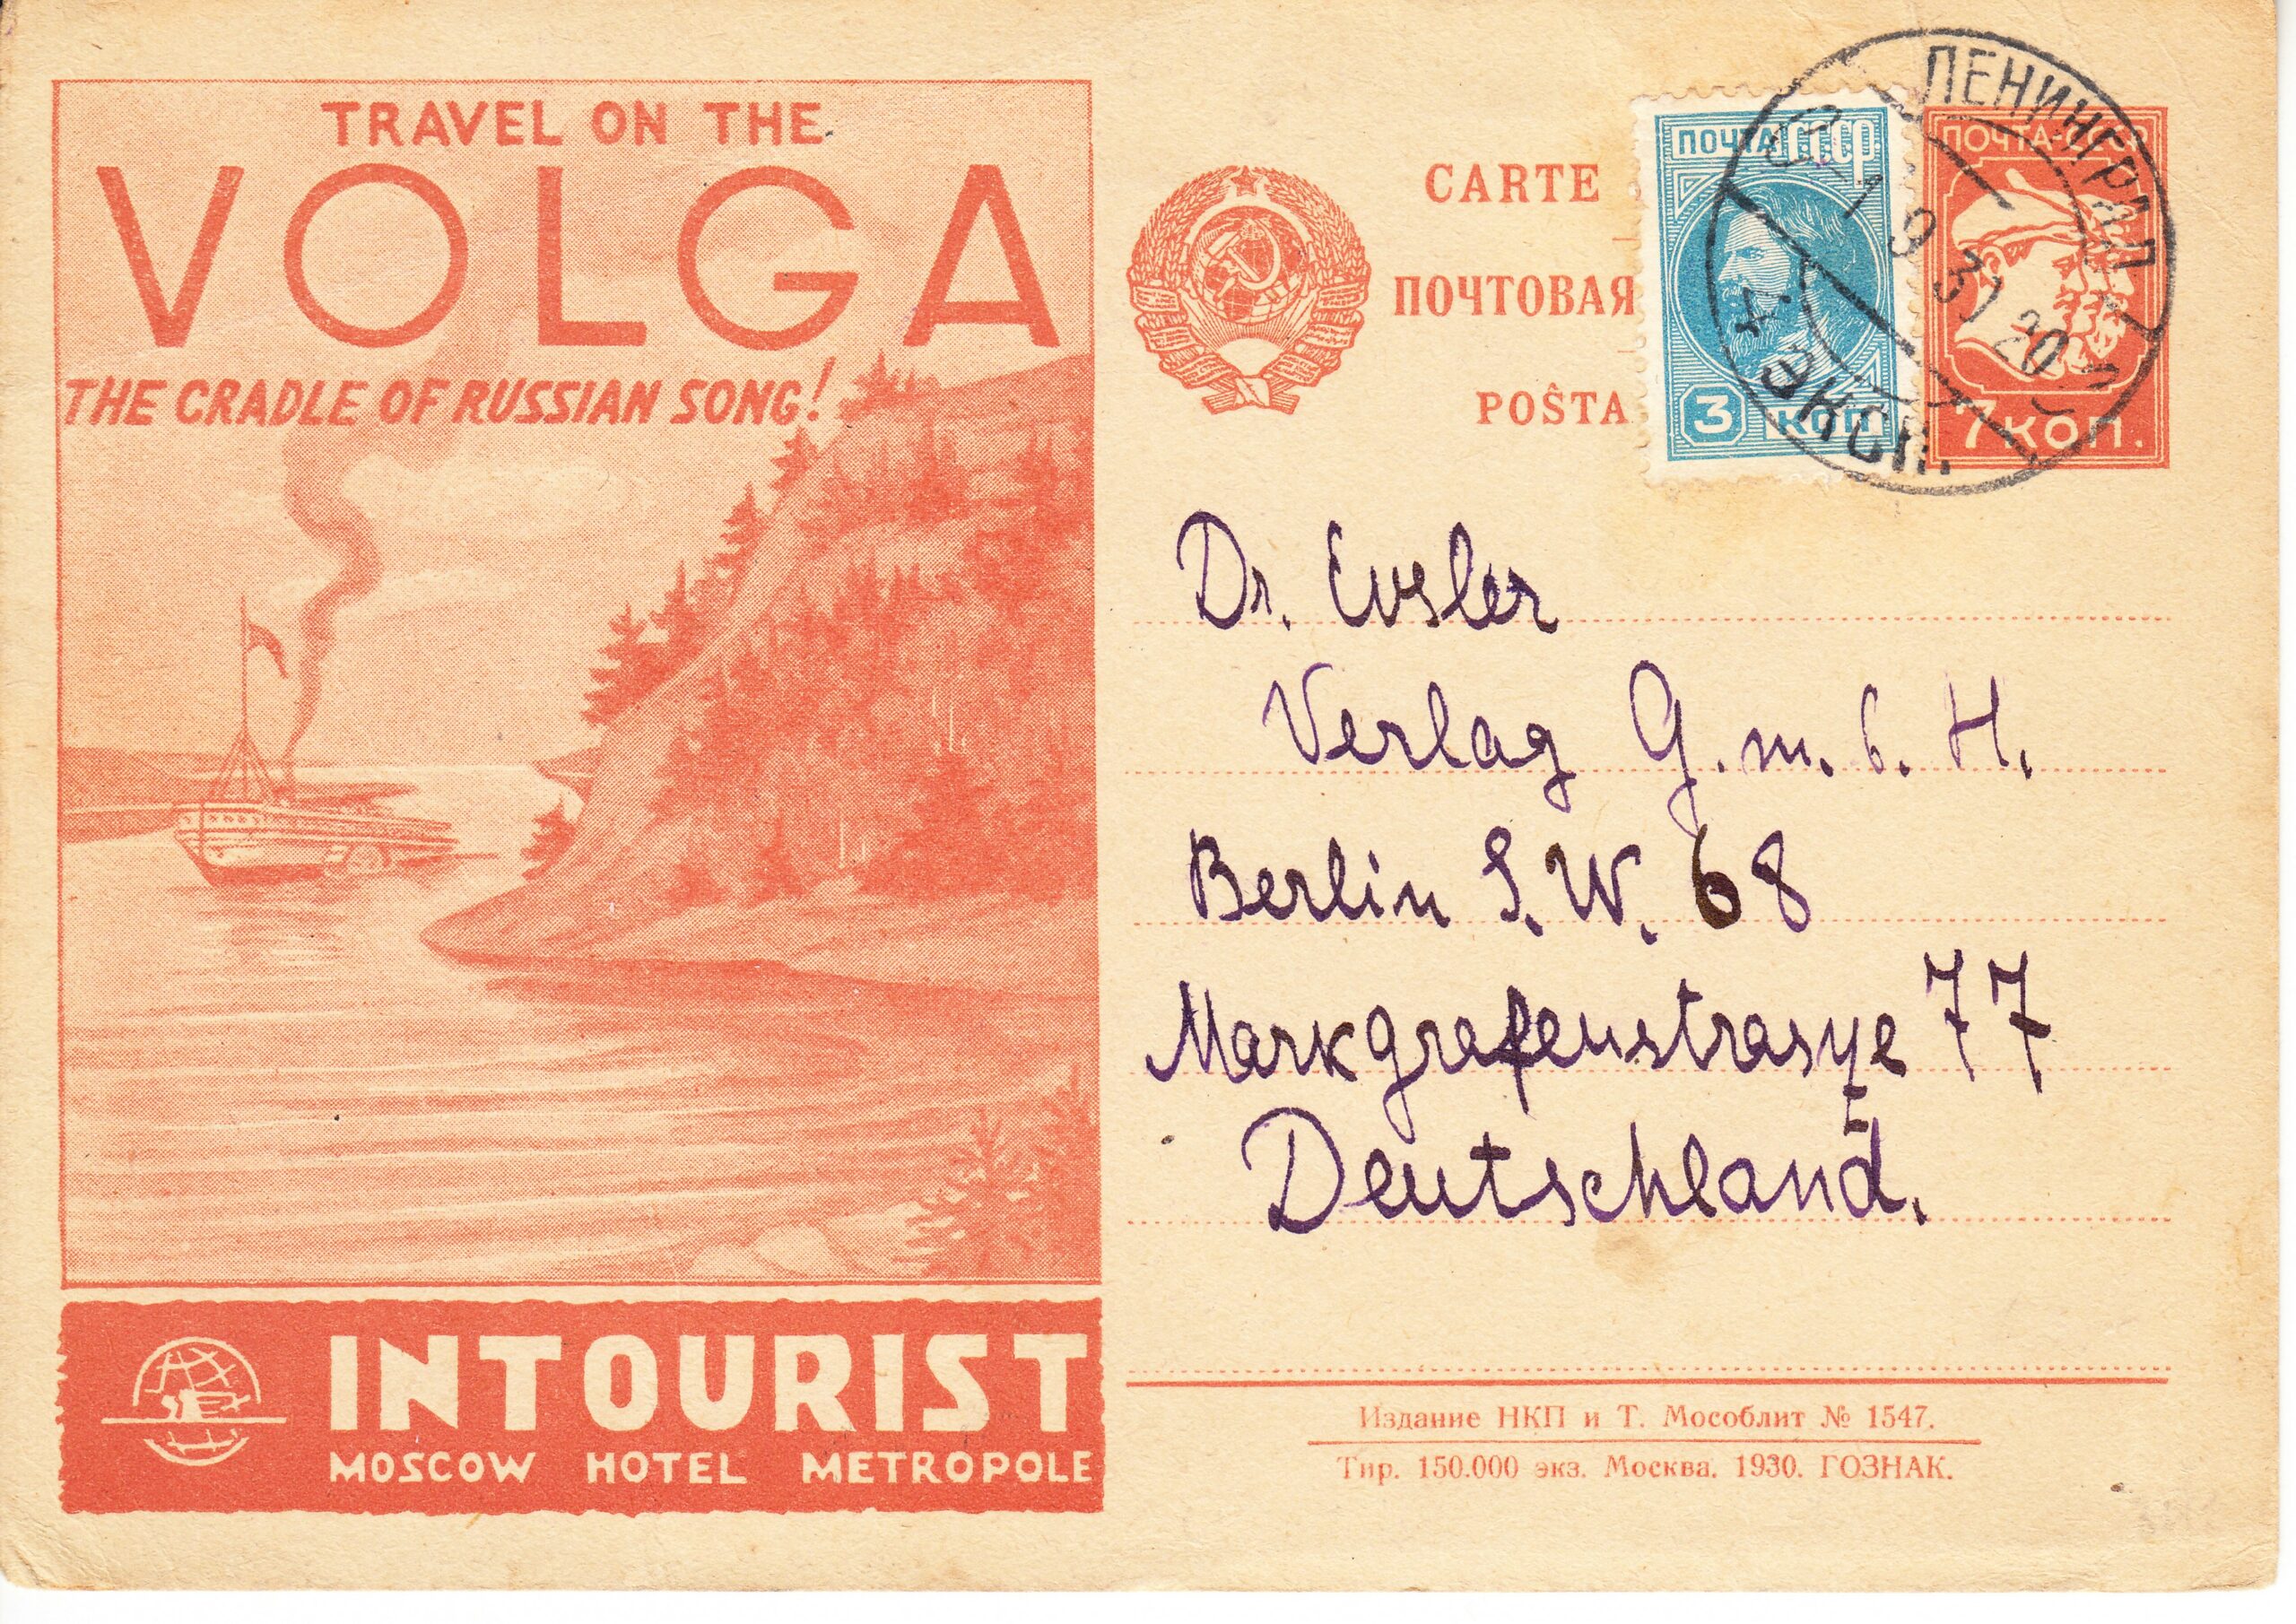 TRAVEL ON THE
VOLGA
THE CRADLE OF RUSSIAN SONG!
INTOURIST
MOSCOW HOTEL METROPOLE
CARTE
ПОЧТОВАЯ
POŜTA
ПОЧТА СССР
3 КОП
ПОЧТА-СССР
7 КОП.
ЛЕНИНГРАД
ЭКСП.
Dr. Eysler
Verlag G.m.b.H.
Berlin S.W. 68
Markgrafenstrasye 77
Deutschland.
Издание НКП и Т. Мособлит № 1547.
Тир. 150.000 экз. Москва. 1930. ГОЗНАК.